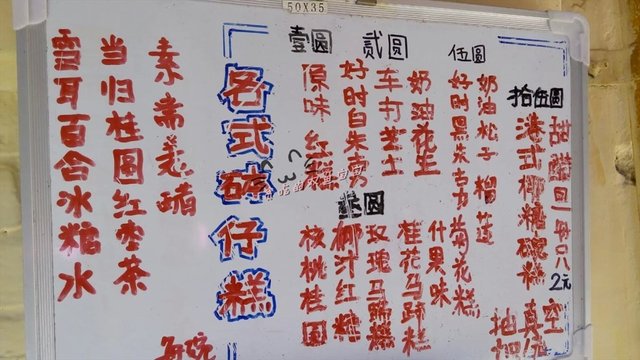 50X35
拾伍圆
甜醋旦一每只2元
港式椰糖砵糕
真空
伍圆
奶油松子 榴莲
好时黑朱古力 菊花糕
贰圆
奶油花生
车打芝士
好时白朱古力
壹圆
原味 红糖
叁圆
什果味
桂花马蹄糕
玫瑰马蹄糕
椰汁红糖
核桃桂圆
各式砵仔糕
素斋
当归桂圆红枣茶
雪耳百合冰糖水
每碗